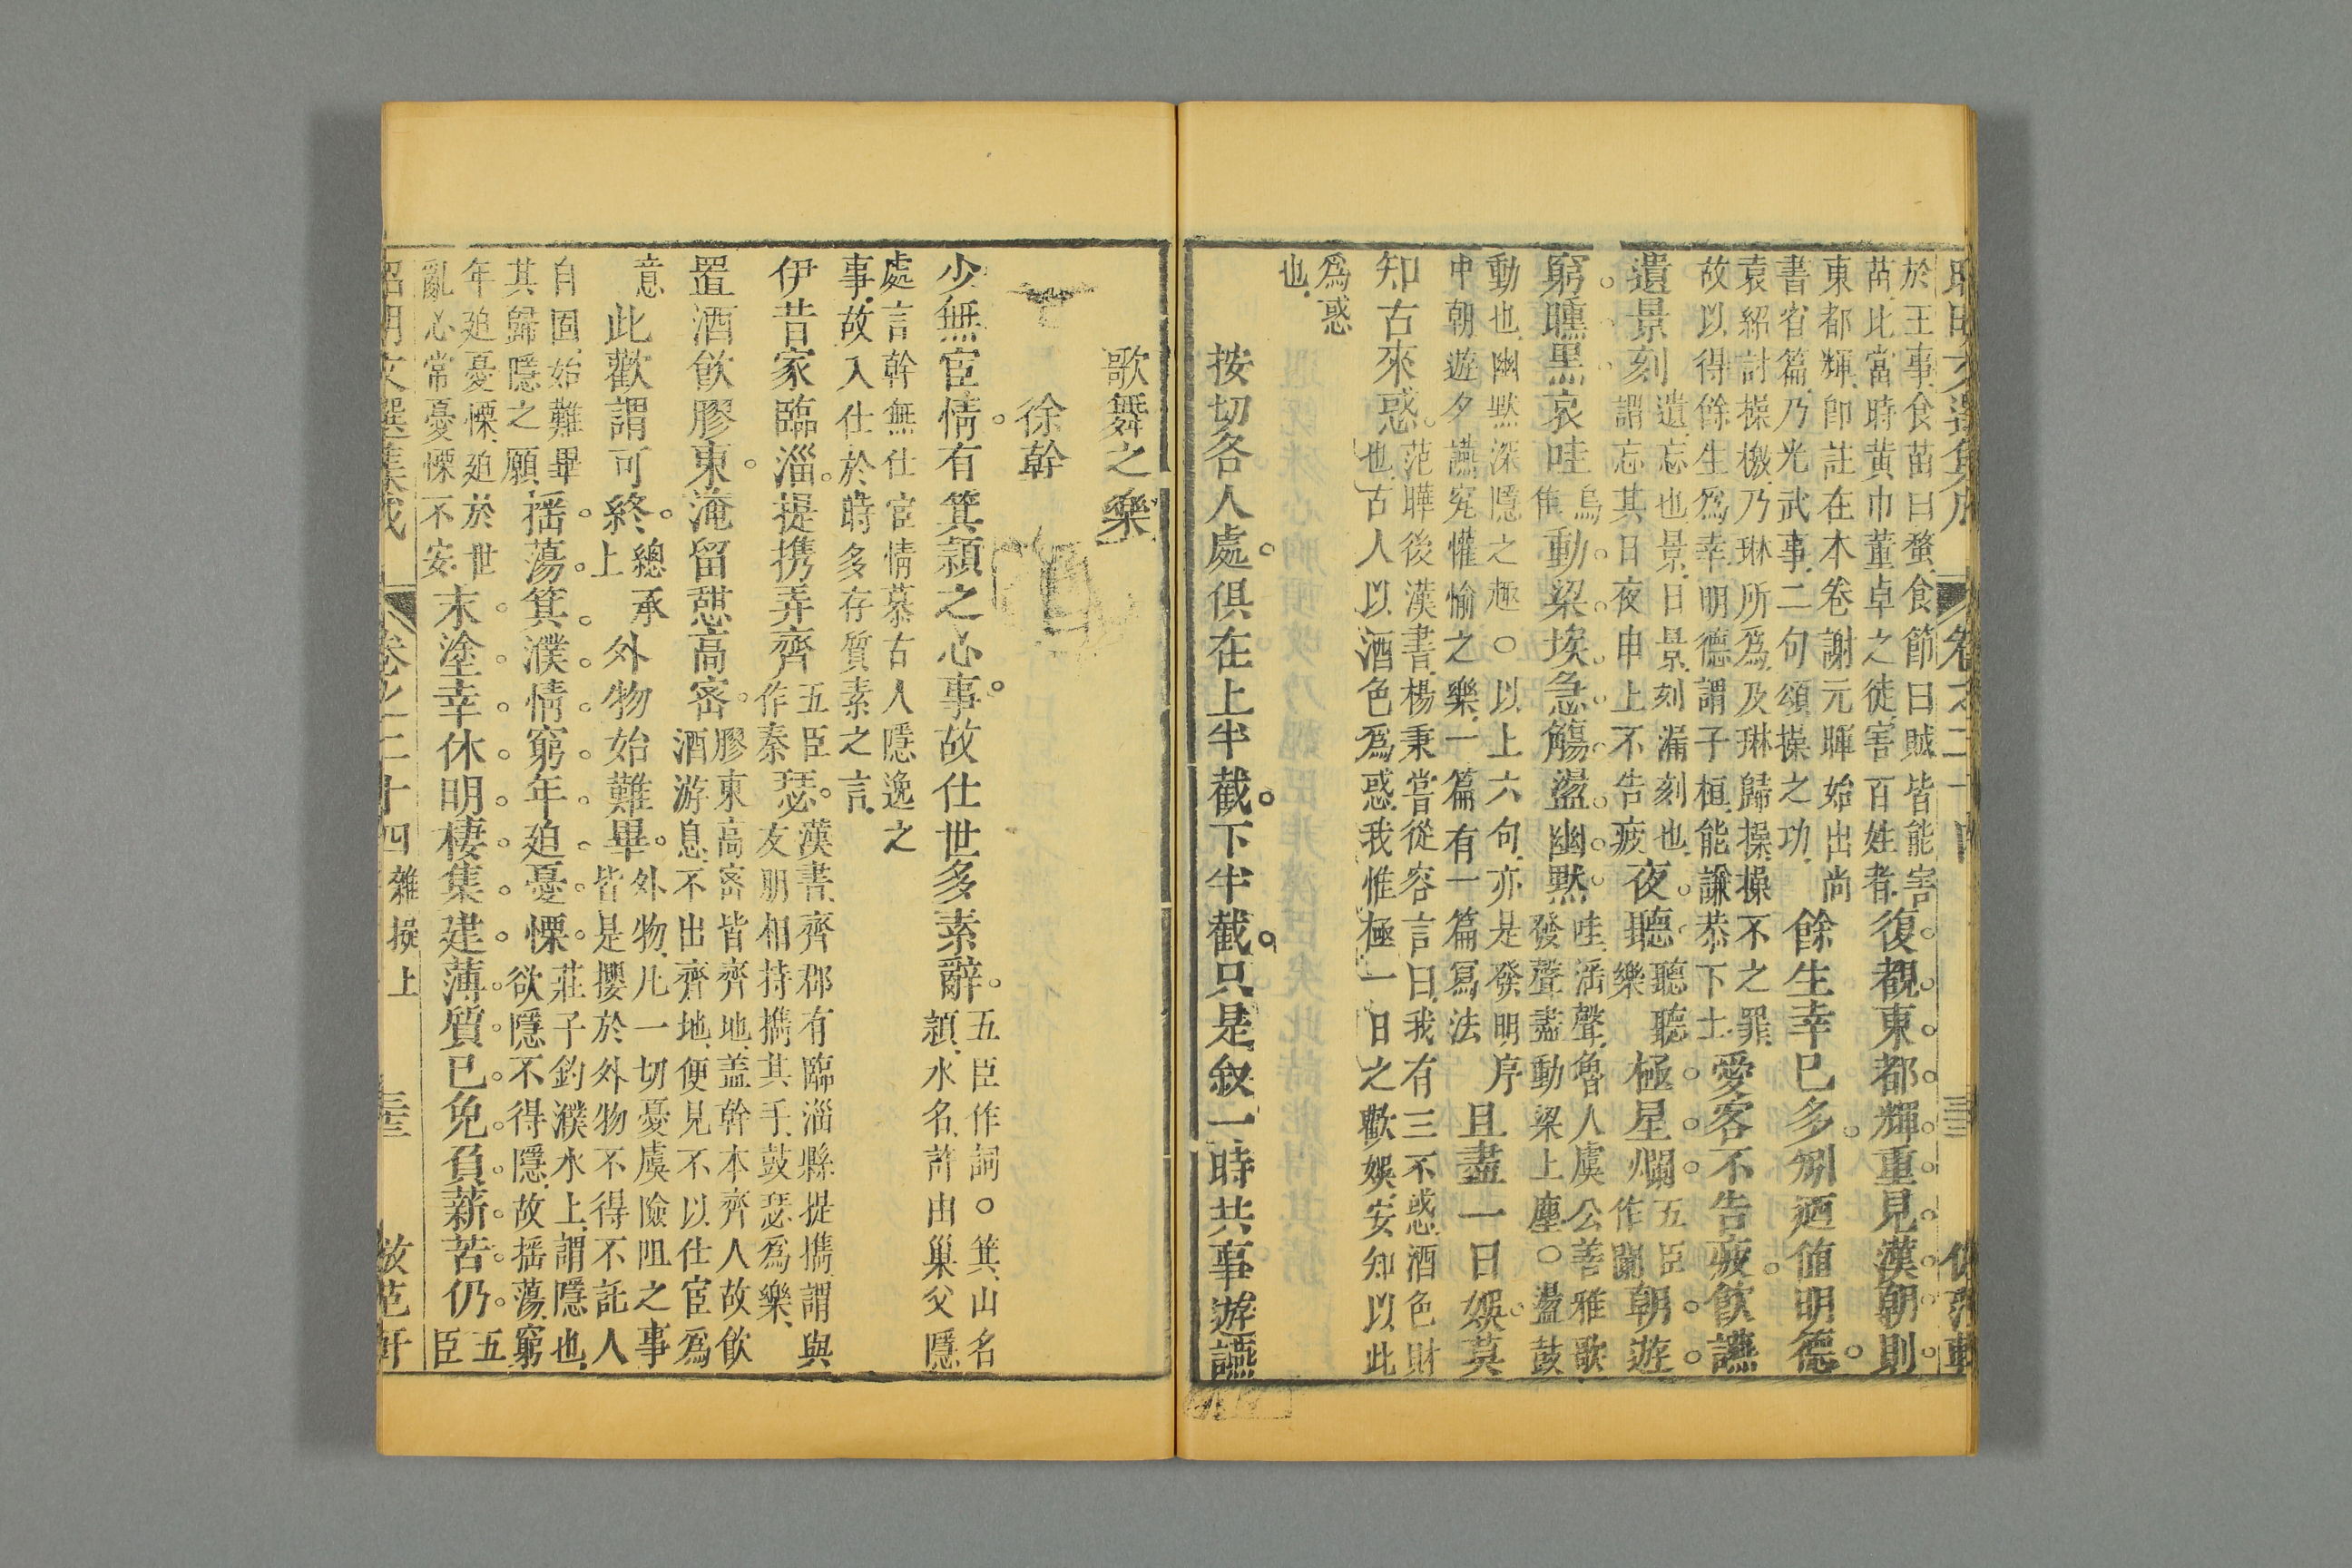 於王事食苗曰蝥食節曰賊皆能害
苗此當時黃巾董卓之徒害百姓者復覩東都輝重見漢朝則
東都輝卽註在本卷謝元暉始出尚
書省篇乃光武事二句頌操之功餘生幸已多矧迺値明德
袁紹討操檄乃琳所爲及琳歸操操不之罪
故以得餘生爲幸明德謂子桓能謙恭下士愛客不告疲飲讌
遺景刻遺忘也景日景刻漏刻也
謂忘其日夜申上不告疲夜聽聽聽
樂極星爛五臣
作闌朝遊
窮曛黑哀哇烏
隹動梁埃急觴盪幽默哇淫聲魯人虞公善雅歌
發聲盡動梁上塵○盪鼓
動也幽默深隱之極○以上六句亦是發明序
中朝遊夕讌究懽愉之樂一篇有一篇寫法且盡一日娛莫
知古來惑范曄後漢書楊秉嘗從容言曰我有三不惑酒色財
也古人以酒色爲惑我惟極一日之歡娛安知以此
爲惑
也
按切各人處俱在上半截下半截只是叙一時共事遊讌
歌舞之樂
徐幹
少無宦情有箕潁之心事故仕世多素辭五臣作詞○箕山名
潁水名許由巢父隱
處言幹無仕宦情慕古人隱逸之
事故入仕於時多存質素之言
伊昔家臨淄提携弄齊五臣
作秦瑟漢書齊郡有臨淄縣提擕謂與
友朋相持擕其手鼓瑟爲樂
置酒飮膠東淹留憇高密膠東高密皆齊地蓋幹本齊人故飮
酒游息不出齊地便見不以仕宦爲
意此歡謂可終總承
上外物始難畢外物凡一切憂虞險阻之事
皆是攖於外物不得不託人
自固始難畢
其歸隱之願揺蕩箕濮情窮年廹憂慄莊子釣濮水上謂隱也
欲隱不得隱故揺蕩窮
年廹憂慄廹於世
亂心常憂慄不安末塗幸休明棲集建薄質已免負薪苦仍五
臣
昭明文選集成 卷之二十四 雜擬上 三三 倣范軒